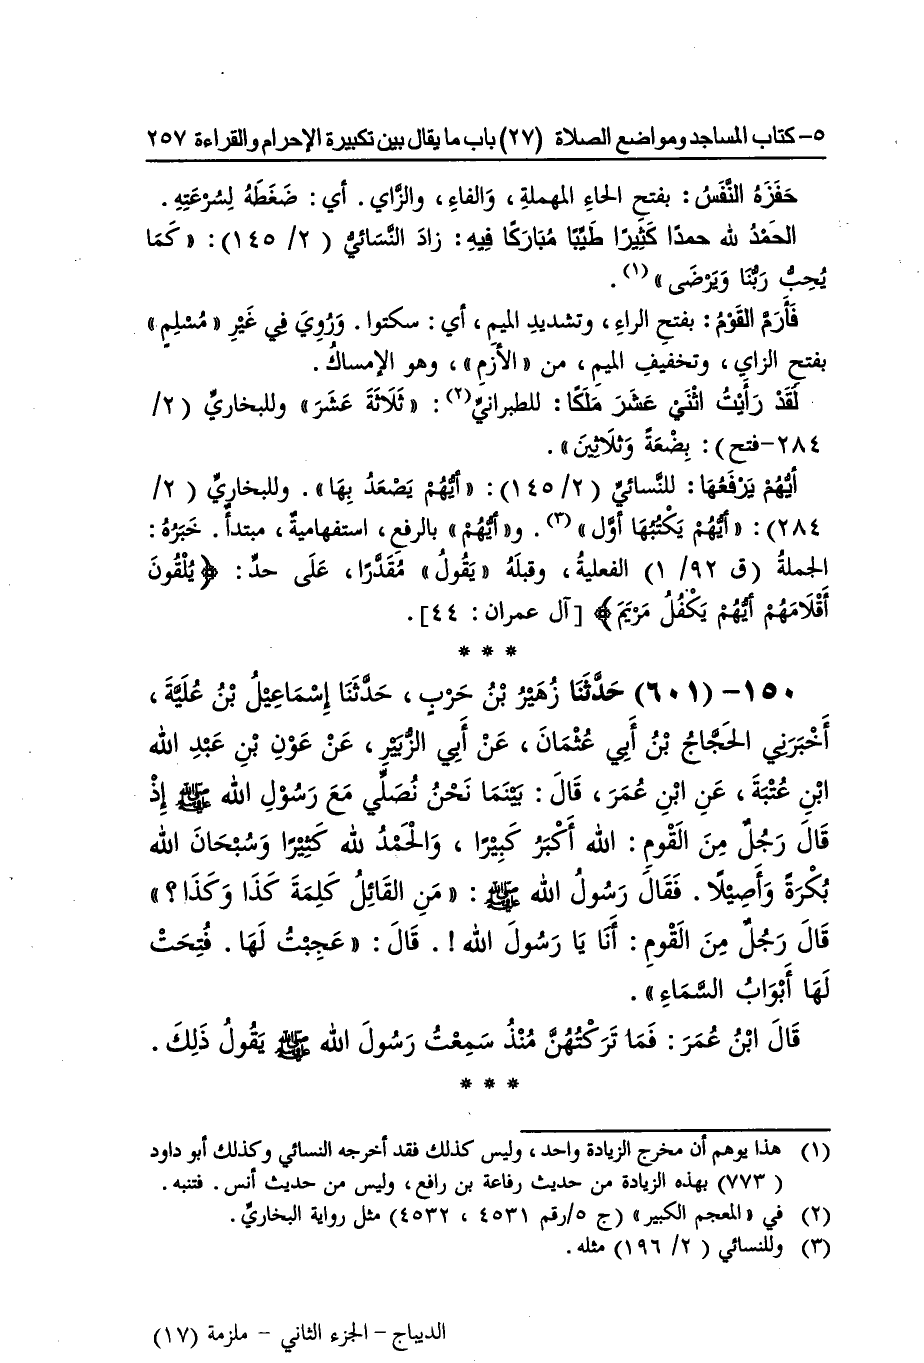 ٥- كتاب المساجد ومواضع الصلاة (٢٧) باب ما يقال بين تكبيرة الإحرام والقراءة ٢٥٧
حَفَزَهُ النَّفَسُ: بفتح الحاءِ المهملةِ، وَالفاءِ، والزَّاي. أي: ضَغَطَهُ لِسُرْعَتِهِ.
الحَمْدُ لله حمدًا كَثِيرًا طَيِّبًا مُبَارَكًا فِيهِ: زادَ النَّسَائيُّ (٢/ ١٤٥): «كَمَا
يُحِبُّ رَبُّنَا وَيَرْضَى»(١).
فَأَرَمَّ القَوْمُ: بفتحِ الراءِ، وتشديدِ الميمِ، أي: سكتوا. وَرُوِيَ فِي غَيْرِ «مُسْلِمٍ»
بفتحِ الزاي، وتخفيفِ الميمِ، من «الأَزْمِ»، وهو الإمساكُ.
لَقَدْ رَأَيْتُ اثْنَيْ عَشَرَ مَلَكًا: للطبرانيِّ(٢): «ثَلَاثَةَ عَشَرَ» وللبخاريِّ (٢/
٢٨٤-فتح): بِضْعَةً وَثَلَاثِينَ».
أَيُّهُمْ يَرْفَعُهَا: للنَّسائيِّ (٢/ ١٤٥): «أَيُّهُمْ يَصْعَدُ بِهَا». وللبخاريِّ (٢/
٢٨٤): «أَيُّهُمْ يَكْتُبُهَا أَوَّل»(٣). و«أَيُّهُمْ» بالرفعِ، استفهاميةٌ، مبتدأٌ. خَبَرُهُ:
الجملةُ (ق ٩٢/ ١) الفعليةُ، وقبلَهُ «يَقُولُ» مُقَدَّرًا، عَلَى حدِّ: ﴿يُلْقُونَ
أَقْلَامَهُمْ أَيُّهُمْ يَكْفُلُ مَرْيَمَ﴾ [آل عمران: ٤٤].
* * *
١٥٠- (٦٠١) حَدَّثَنَا زُهَيْرُ بْنُ حَرْبٍ، حَدَّثَنَا إِسْمَاعِيْلُ بْنُ عُلَيَّةَ،
أَخْبَرَنِي الحَجَّاجُ بْنُ أَبِي عُثْمَانَ، عَنْ أَبِي الزُّبَيْرِ، عَنْ عَوْنِ بْنِ عَبْدِ الله
ابْنِ عُتْبَةَ، عَنِ ابْنِ عُمَرَ، قَالَ: بَيْنَمَا نَحْنُ نُصَلِّي مَعَ رَسُوْلِ الله ﷺ إِذْ
قَالَ رَجُلٌ مِنَ القَوْمِ: الله أَكْبَرُ كَبِيْرًا، وَالْحَمْدُ لله كَثِيْرًا وَسُبْحَانَ الله
بُكْرَةً وَأَصِيْلًا. فَقَالَ رَسُولُ الله ﷺ: «مَنِ القَائِلُ كَلِمَةَ كَذَا وَكَذَا؟»
قَالَ رَجُلٌ مِنَ القَوْمِ: أَنَا يَا رَسُولَ الله!. قَالَ: «عَجِبْتُ لَهَا. فُتِحَتْ
لَهَا أَبْوَابُ السَّمَاءِ».
قَالَ ابْنُ عُمَرَ: فَمَا تَرَكْتُهُنَّ مُنْذُ سَمِعْتُ رَسُولَ الله ﷺ يَقُولُ ذَلِكَ.
* * *
(١) هذا يوهم أن مخرج الزيادة واحد، وليس كذلك فقد أخرجه النسائي وكذلك أبو داود
(٧٧٣) بهذه الزيادة من حديث رفاعة بن رافع، وليس من حديث أنس. فتنبه.
(٢) في «المعجم الكبير» (ج ٥/رقم ٤٥٣١، ٤٥٣٢) مثل رواية البخاريِّ.
(٣) وللنسائي (٢/ ١٩٦) مثله.
الديباج - الجزء الثاني - ملزمة (١٧)